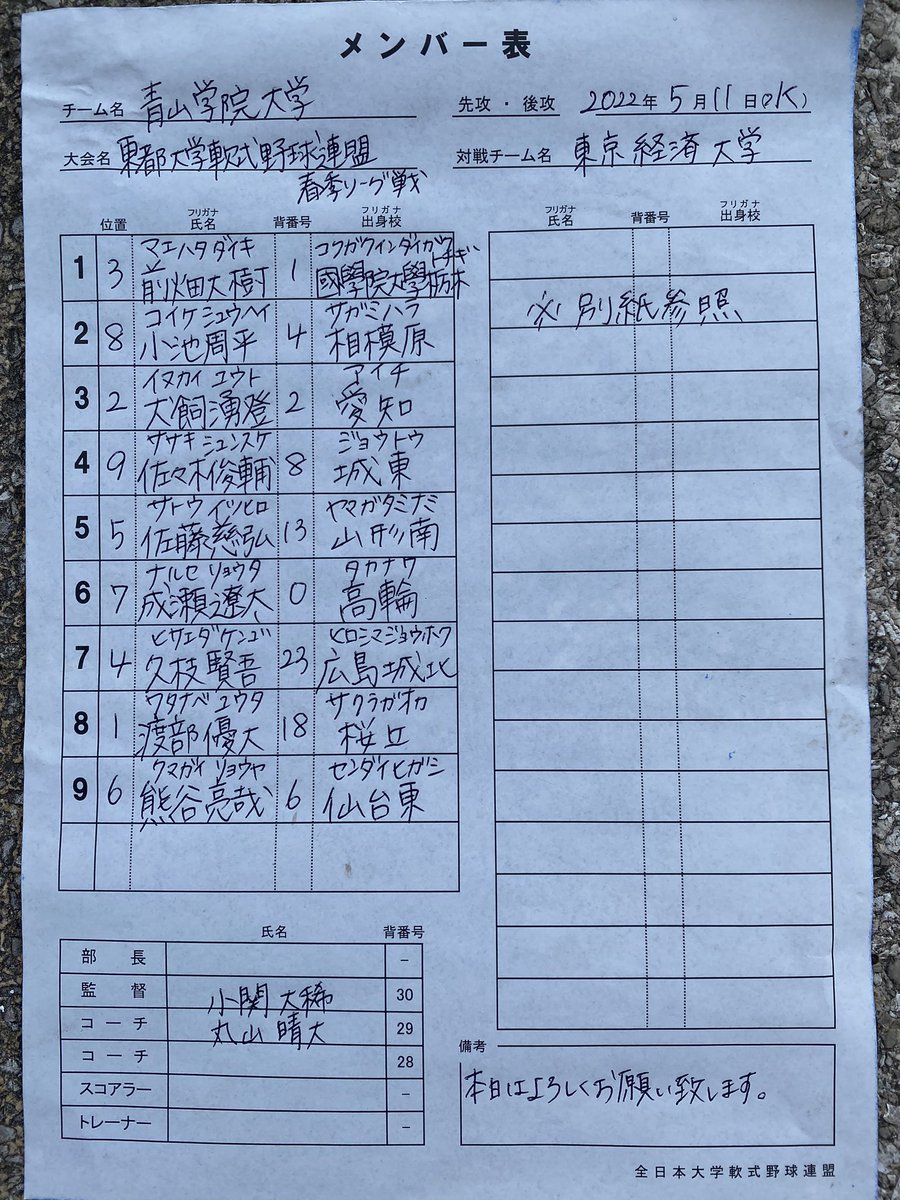 メンバー表
チーム名 青山学院大学 先攻・後攻 2022年5月11日(水)
大会名 東都大学軟式野球連盟 対戦チーム名 東京経済大学
春季リーグ戦
位置 フリガナ 氏名 背番号 フリガナ 出身校
マエハタダイキ コクガクインダイガクトチギ
1 3 前畑大樹 1 國學院大學栃木
コイケシュウヘイ サガミハラ
2 8 小池周平 4 相模原
イヌカイユウト アイチ
3 2 犬飼湧登 2 愛知
ササキシュンスケ ジョウトウ
4 9 佐々木俊輔 8 城東
サトウイツヒロ ヤマガタミナミ
5 5 佐藤慈弘 13 山形南
ナルセリョウタ タカナワ
6 7 成瀬遼大 0 高輪
ヒサエダケンゴ ヒロシマジョウホク
7 4 久枝賢吾 23 広島城北
ワタナベユウタ サクラガオカ
8 1 渡部優大 18 桜丘
クマガイリョウヤ センダイヒガシ
9 6 熊谷亮哉 6 仙台東
フリガナ 氏名 背番号 フリガナ 出身校
※別紙参照
氏名 背番号
部長 −
監督 小関大稀 30
コーチ 丸山晴大 29
コーチ 28
スコアラー −
トレーナー −
備考
本日はよろしくお願い致します。
全日本大学軟式野球連盟